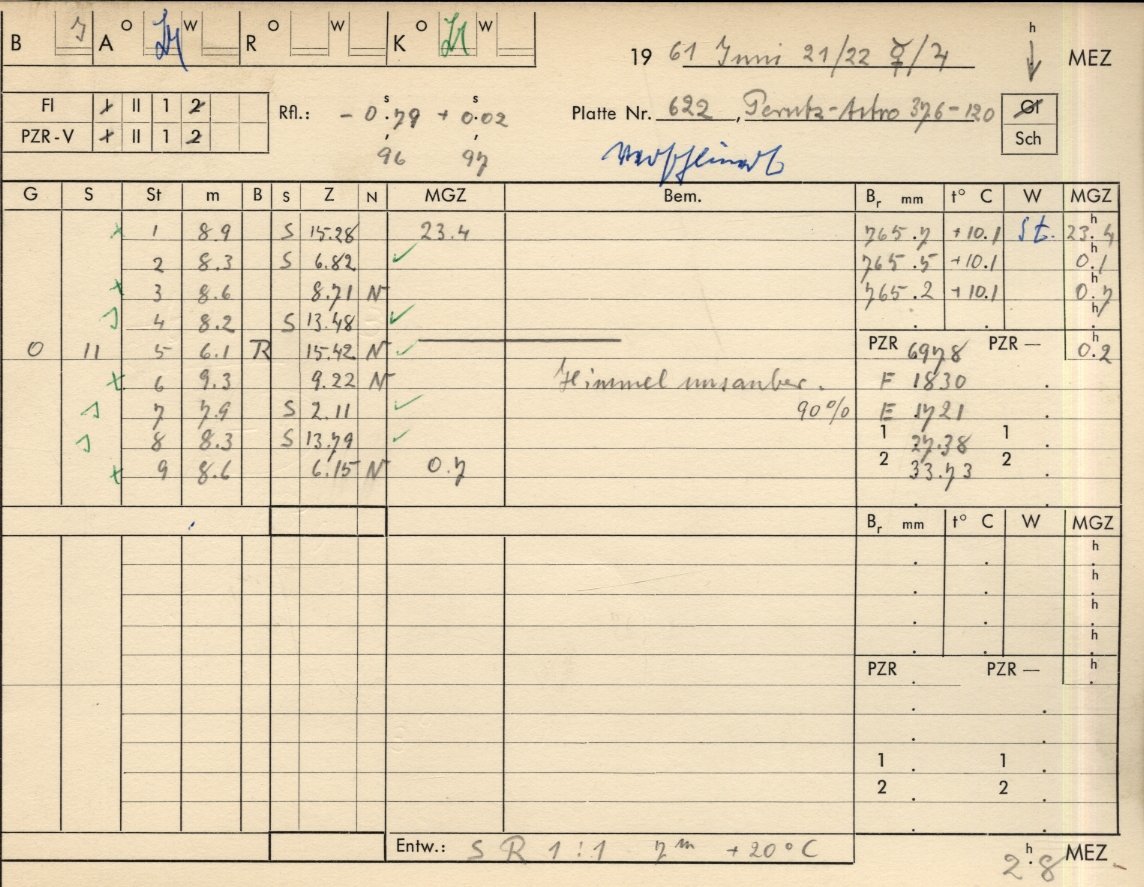 B J A O W R O W K O W
19 61 Juni 21/22 ☿/♃ h MEZ
FI I II 1 2
Rfl.: - 0.79 + 0.02
s s
Platte Nr. 622, Perutz-Astro 376-120 Gl
PZR-V I II 1 2
96 97
Sch
verschleiert
G S St m B S Z N MGZ Bem. Br mm t° C W MGZ
× 1 8.9 S 15.28 23.4 765.7 +10.1 St. 23.4
2 8.3 S 6.82 ✓ 765.5 +10.1 0.1
× 3 8.6 8.71 N 765.2 +10.1 0.7
S 4 8.2 S 13.48 ✓
0 II 5 6.1 R 15.42 N ✓ PZR 6978 PZR — 0.2
× 6 9.3 9.22 N Himmel unsauber. F 1830
S 7 7.9 S 2.11 ✓ 90% E 1721
S 8 8.3 S 13.79 ✓ 1 27.38 1
× 9 8.6 6.15 N 0.7 2 33.73 2
Br mm t° C W MGZ
h
h
h
h
PZR PZR — h
1 1
2 2
Entw.: S R 1:1 7m +20°C
2.8 h MEZ